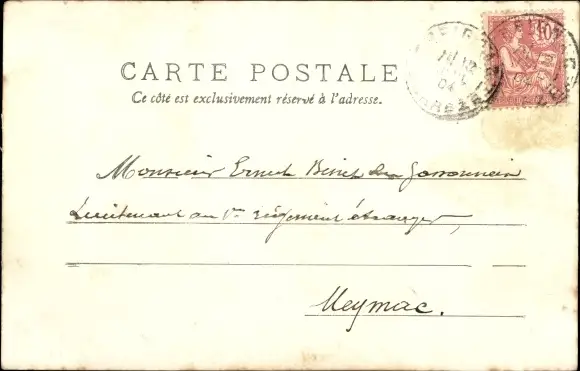 CARTE POSTALE
Ce côté est exclusivement réservé à l'adresse.
10
04
CORRÈZE
Monsieur Ernest Binet du Jassonneix
Lieutenant au 1er régiment étranger,
Meymac.